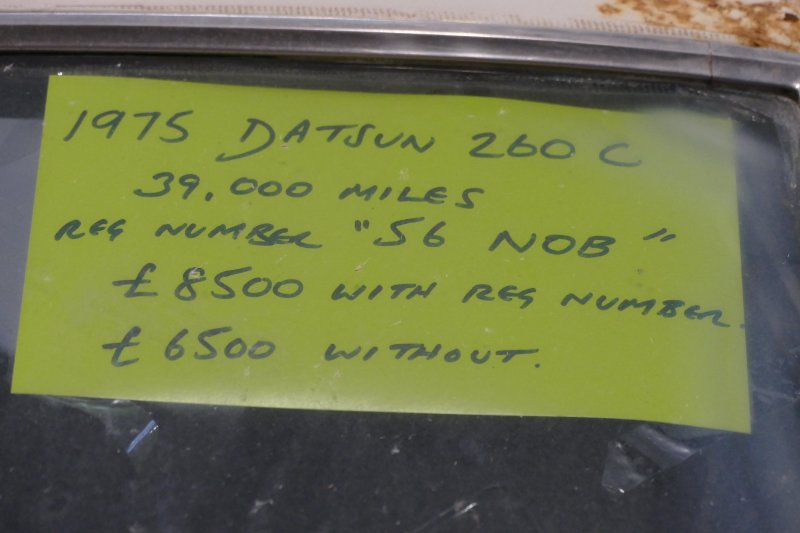 1975 DATSUN 260 C
39,000 MILES
REG NUMBER "56 NOB"
£8500 WITH REG NUMBER.
£6500 WITHOUT.